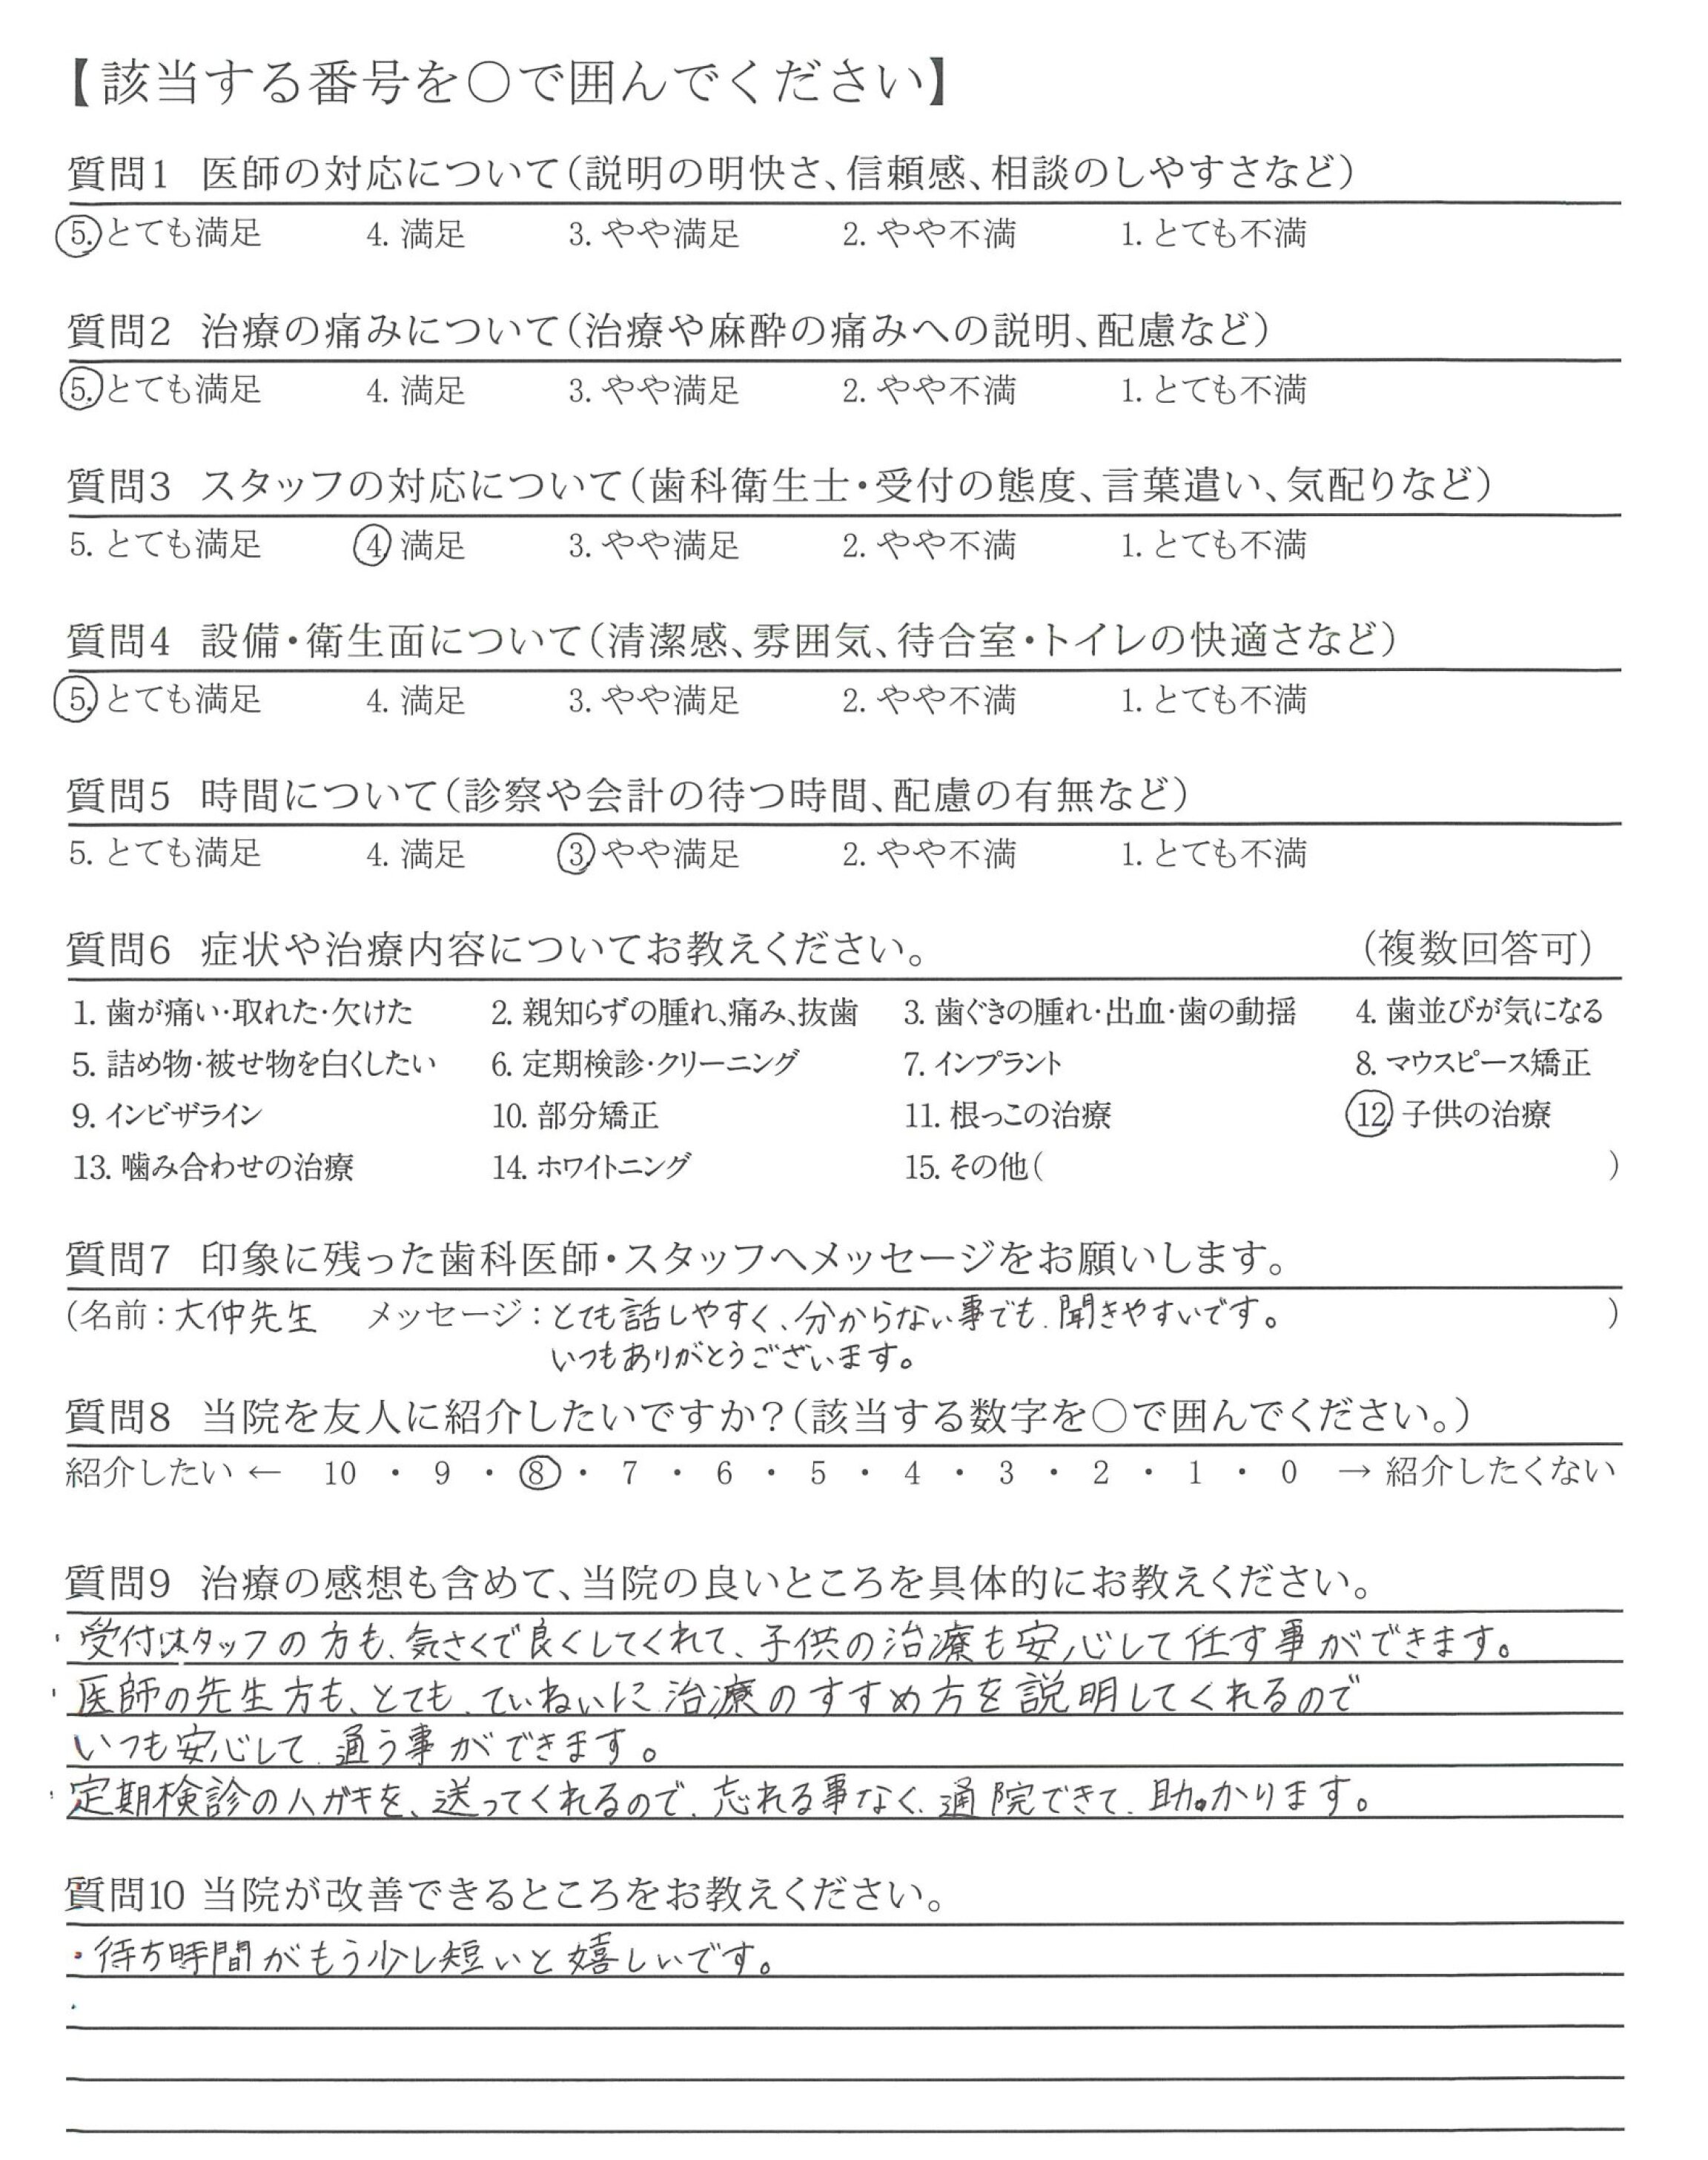 【該当する番号を○で囲んでください】
質問1 医師の対応について(説明の明快さ、信頼感、相談のしやすさなど)
5. とても満足 4. 満足 3. やや満足 2. やや不満 1. とても不満
質問2 治療の痛みについて(治療や麻酔の痛みへの説明、配慮など)
5. とても満足 4. 満足 3. やや満足 2. やや不満 1. とても不満
質問3 スタッフの対応について(歯科衛生士・受付の態度、言葉遣い、気配りなど)
5. とても満足 4. 満足 3. やや満足 2. やや不満 1. とても不満
質問4 設備・衛生面について(清潔感、雰囲気、待合室・トイレの快適さなど)
5. とても満足 4. 満足 3. やや満足 2. やや不満 1. とても不満
質問5 時間について(診察や会計の待つ時間、配慮の有無など)
5. とても満足 4. 満足 3. やや満足 2. やや不満 1. とても不満
質問6 症状や治療内容についてお教えください。 (複数回答可)
1. 歯が痛い・取れた・欠けた 2. 親知らずの腫れ、痛み、抜歯 3. 歯ぐきの腫れ・出血・歯の動揺 4. 歯並びが気になる
5. 詰め物・被せ物を白くしたい 6. 定期検診・クリーニング 7. インプラント 8. マウスピース矯正
9. インビザライン 10. 部分矯正 11. 根っこの治療 12. 子供の治療
13. 噛み合わせの治療 14. ホワイトニング 15. その他( )
質問7 印象に残った歯科医師・スタッフへメッセージをお願いします。
(名前：大仲先生 メッセージ：とても話しやすく、分からない事でも、聞きやすいです。 )
いつもありがとうございます。
質問8 当院を友人に紹介したいですか？(該当する数字を○で囲んでください。)
紹介したい ← 10 ・ 9 ・ 8 ・ 7 ・ 6 ・ 5 ・ 4 ・ 3 ・ 2 ・ 1 ・ 0 → 紹介したくない
質問9 治療の感想も含めて、当院の良いところを具体的にお教えください。
・受付スタッフの方も、気さくで良くしてくれて、子供の治療も安心して任す事ができます。
・医師の先生方も、とても、ていねいに治療のすすめ方を説明してくれるので
いつも安心して、通う事ができます。
・定期検診のハガキを、送ってくれるので、忘れる事なく、通院できて、助かります。
質問10 当院が改善できるところをお教えください。
・待ち時間がもう少し短いと嬉しいです。